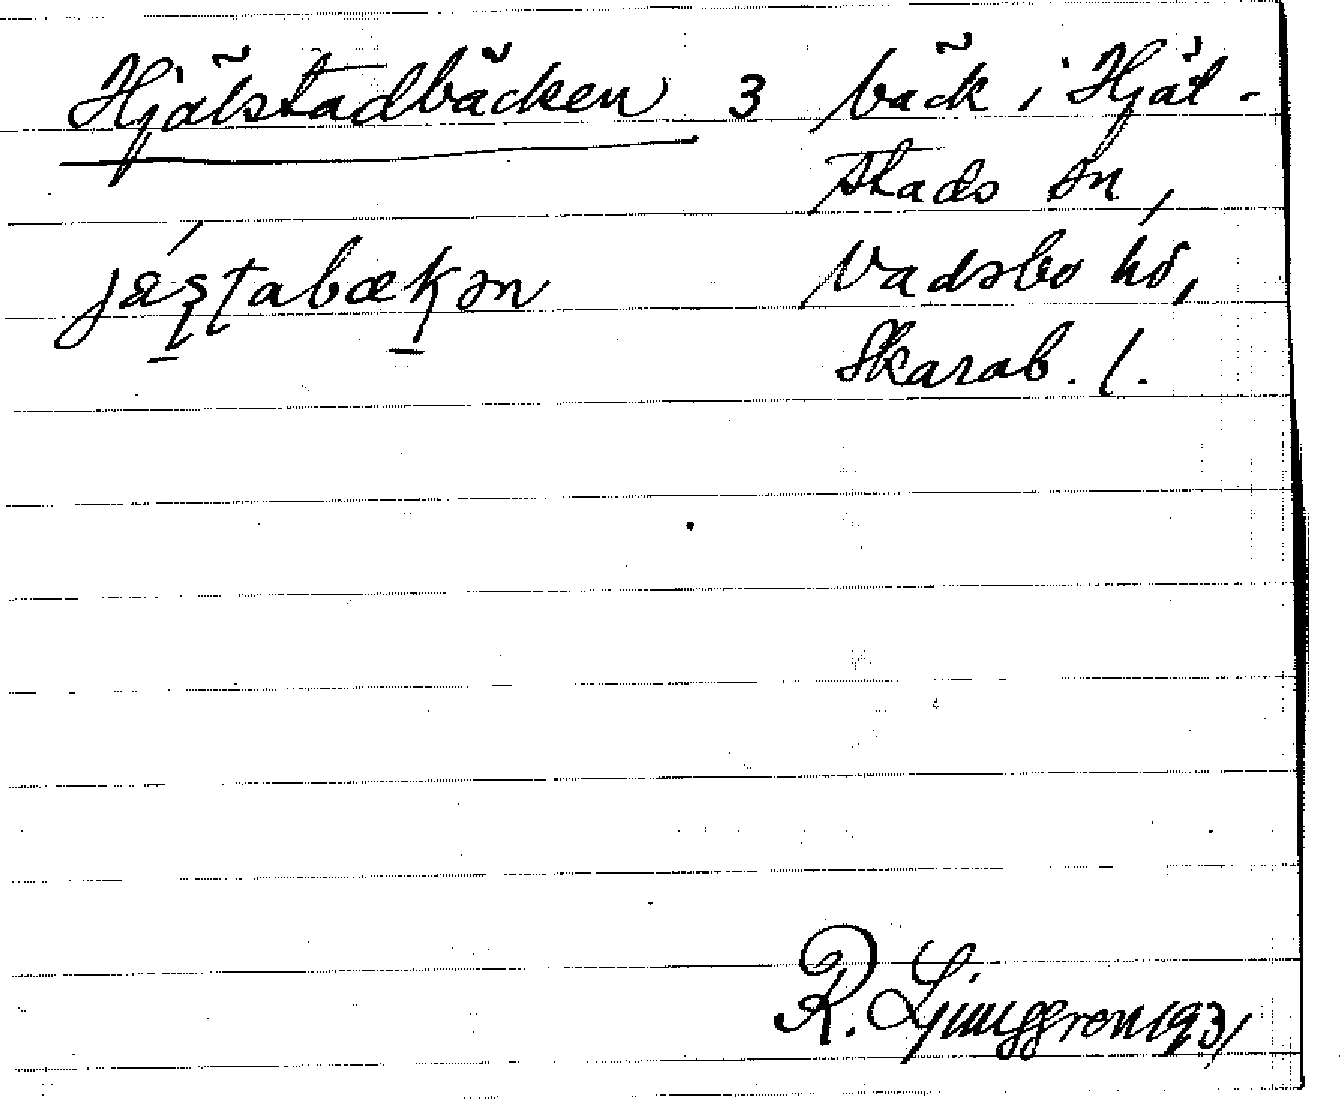 Hjälstadbäcken 3 bäck i Hjäl-
stads sn,
Vadsbo hd,
Skarab. l.
R. Ljunggren 1931